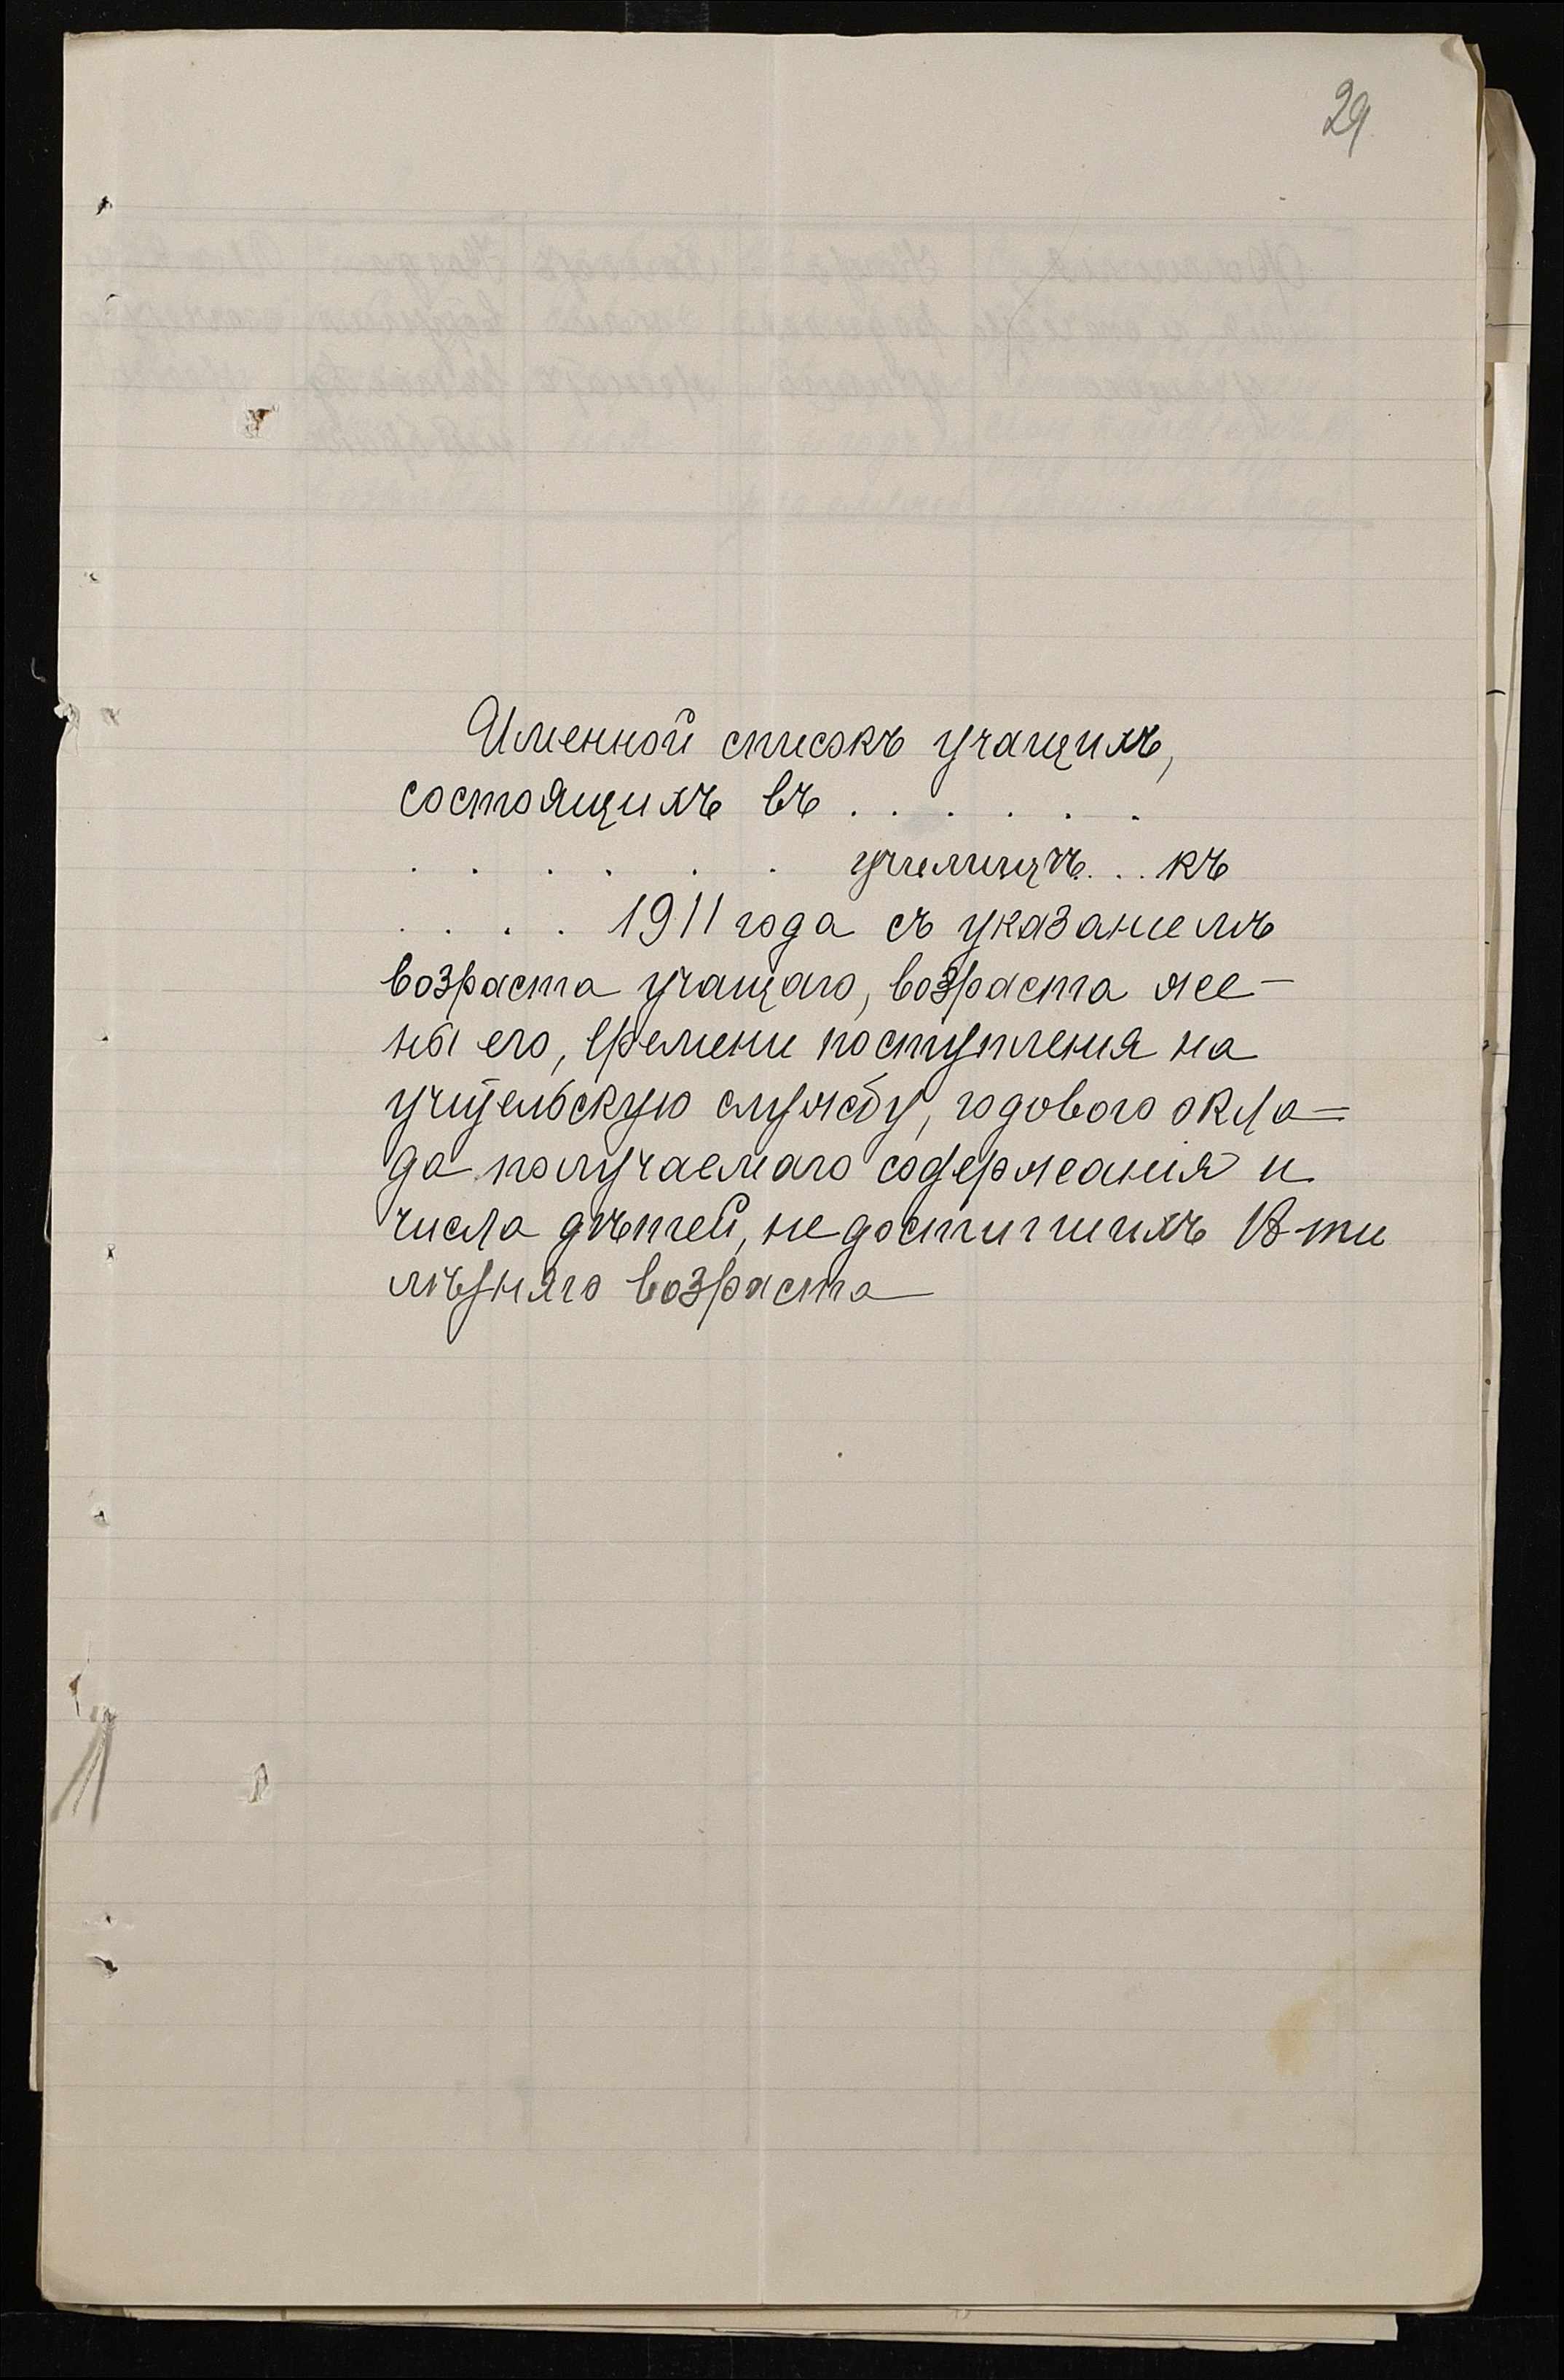 29
Именной списокъ учащихъ,
состоящихъ въ . . . . . .
. . . . . . . училищѣ... къ
. . . . 1911 года съ указаніемъ
возраста учащаго, возраста же-
ны его, времени поступленія на
учительскую службу, годового окла=
да получаемаго содержанія и
числа дѣтей, не достигшихъ 18-ти
лѣтняго возраста